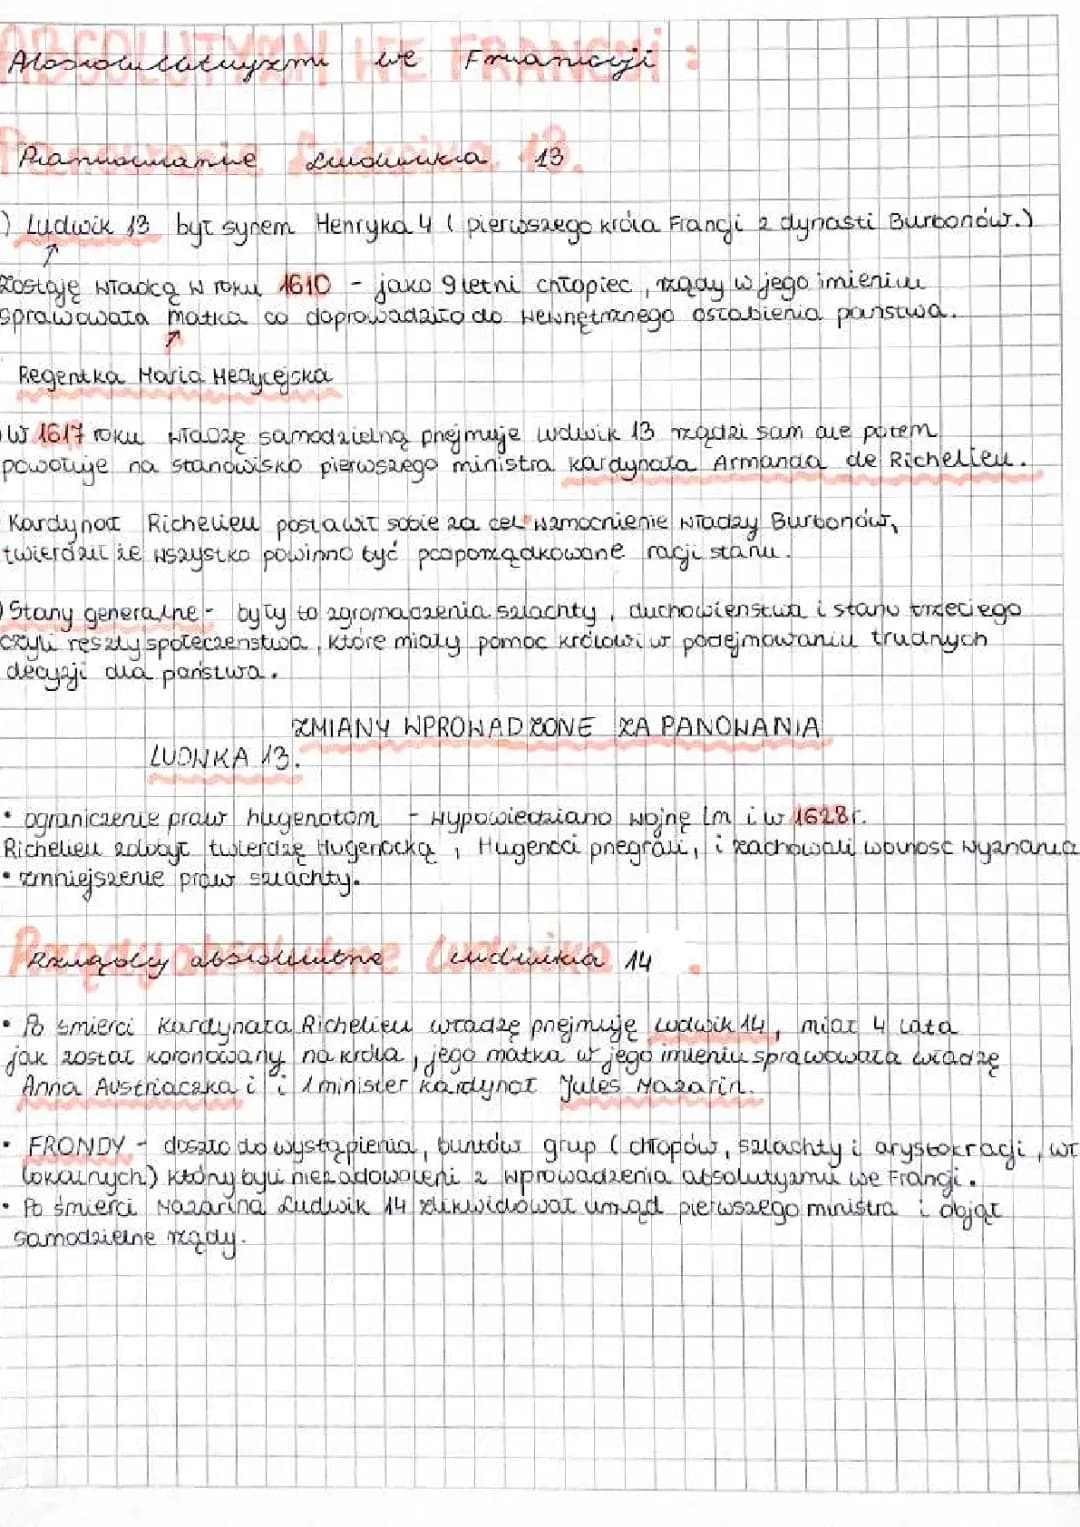 Absolutyzm we Francji :
Panowanie Ludwika 13.
) Ludwik 13 był synem Henryka 4 ( pierwszego króla Francji z dynasti Burbonów.)
Zostaję władcą w roku 1610 - jako 9letni chłopiec, rządy w jego imieniu
sprawowała matka co doprowadziło do wewnętrznego osłabienia państwa.
Regentka Maria Medycejska
W 1617 roku władzę samodzielną prejmuje Ludwik 13 rządzi sam ale potem
powołuje na stanowisko pierwszego ministra kardynała Armanda de Richelieu.
Kardynał Richelieu postawił sobie za cel wzmocnienie władzy Burbonów,
twierdził że wszystko powinno być podporządkowane racji stanu.
) Stany generalne - były to zgromadzenia szlachty, duchowieństwa i stanu trzeciego
czyli reszty społeczeństwa, które miały pomoc królowi w podejmowaniu trudnych
decyzji dla państwa.
ZMIANY WPROWADZONE ZA PANOWANIA
LUDWKA 13.
• ograniczenie praw hugenotom - wypowiedziano wojnę Im i w 1628r.
Richelieu zdobył twierdzę Hugenocką, Hugenoci pregrali, i zachowali wolność wyznania
• zmniejszenie praw szlachty.
Rządy absolutne Ludwika 14.
• Po śmierci Kardynała Richelieu władzę prejmuję Ludwik 14, miał 4 lata
jak został koronowany na króla, jego matka w jego imieniu sprawowała władzę
Anna Austriaczka i i 1 minister kardynał Jules Mazarin.
• FRONDY - doszło do wystąpienia, buntów grup ( chłopów, szlachty i arystokracji, wł
lokalnych) który byli niezadowoleni z wprowadzenia absolutyzmu we Francji.
• Po śmierci Mazarina Ludwik 14 zlikwidował urząd pierwszego ministra i objął
samodzielne rządy.